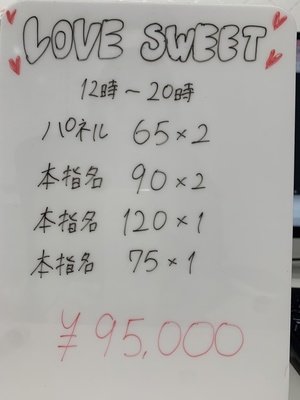 LOVE SWEET
12時〜20時
パネル 65×2
本指名 90×2
本指名 120×1
本指名 75×1
¥95,000